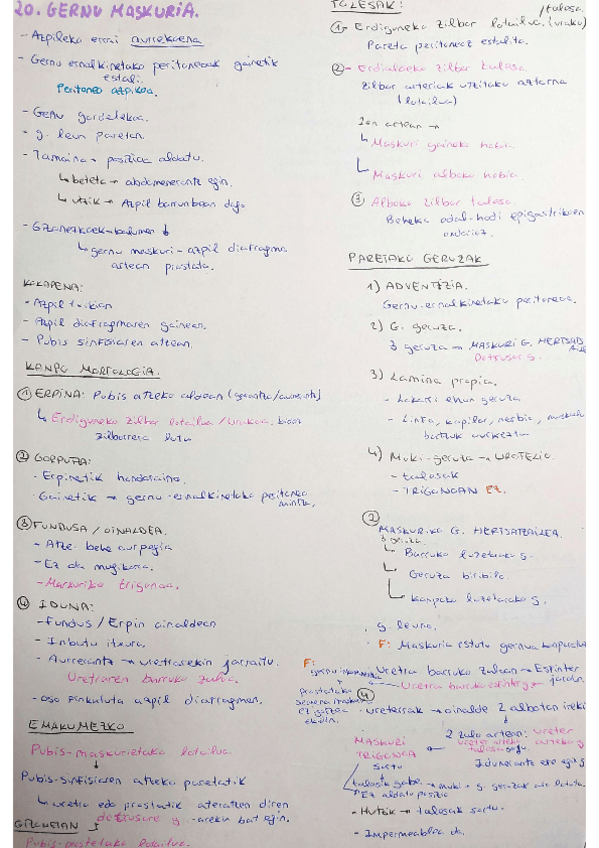 20. GERNU MASKURIA.
- Azpileko errai aurrekoena
- Gernu ernalkinetako peritoneoak gainetik
estali.
Peritoneo azpikoa.
- Gernu gordelekua.
- g. leun paretan.
- Tamaina → posizioa aldatu.
↳ beteta → abdomenerantz egin.
↳ utzik → Azpil barrunbean dago
- Gizonezkoek
↳ gernu maskuri - azpil diafragma
artean prostata.
KOKAPENA:
- Azpil
- Azpil diafragmaren gainean.
- Pubis sinfisiaren atzean.
KANPO MORFOLOGIA.
① ERPINA: Pubis atzeko aldean
↳ Erdiguneko zilbor lotailua / Urakoa, bidez
zilborrera lotu
② GORPUTZA:
- Erpinetik hondoraino.
- Gainetik → gernu-ernalkinetako peritoneo
mintza.
③ FUNDUSA / OINALDEA.
- Atze-behe aurpegia
- Ez da mugikorra.
- Maskuriko trigonoa.
④ IDUNA:
- Fundus / Erpin oinaldean
- Inbutu itxura.
- Aurrerantz → uretrarekin jarraitu.
Uretraren barruko zuloa.
- oso finkatuta azpil diafragman.
EMAKUMEZKO
Pubis-maskurietako lotailua.
Pubis-sinfisiaren atzeko paretatik
↳ uretra edo prostatik ateratzen diren
detrusore g.-arekin bat egin.
GIZONETAN
Pubis-prostatako lotailua.
TOLESAK:
① Erdiguneko zilbor lotailua. (uraku)
Pareta peritoneoz estalita.
② - Erdialdeko zilbor tolesa.
Zilbor arteriak utzitako aztarna
(lotailua)
Hon artean →
↳ Maskuri gaineko hobia
↳ Maskuri alboko hobia.
③ Alboko zilbor tolesa.
Beheko odol-hodi epigastrikoen
ondorioz.
PARETAKO GERUZAK
1) ADVENTIZIA.
Gernu-ernalkinetako peritoneoa.
2) G. geruza.
3 geruza → MASKURI G. HERTSATZAILEA
Detrusor g.
3) Lamina propia.
- Lakain ehun geruza
- Linfa, kapilar, nerbio,
4) Muki-geruza → UROTELIO.
- tolesak
- TRIGONOAN EZ.
② MASKURIKO G. HERTSATZAILEA.
3 geruza
↳ Barruko luzetarako g.
↳ Geruza biribila.
↳ Kanpoko luzetarako g.
g. leuna.
F: Maskuria estutu gernua kanporatu
F: Uretra barruko zuloan → Esfinter
Uretra barruko esfinterg
④ ureterrak → oinalde 2 albotan ireki
2 zulo artean: ureter
tolesa
MASKURI
TRIGONOA
tolesik gabe → muki + g. geruzak
Ez aldatu posizio
- Hutsik → tolesak sortu.
- Impermeablea da.